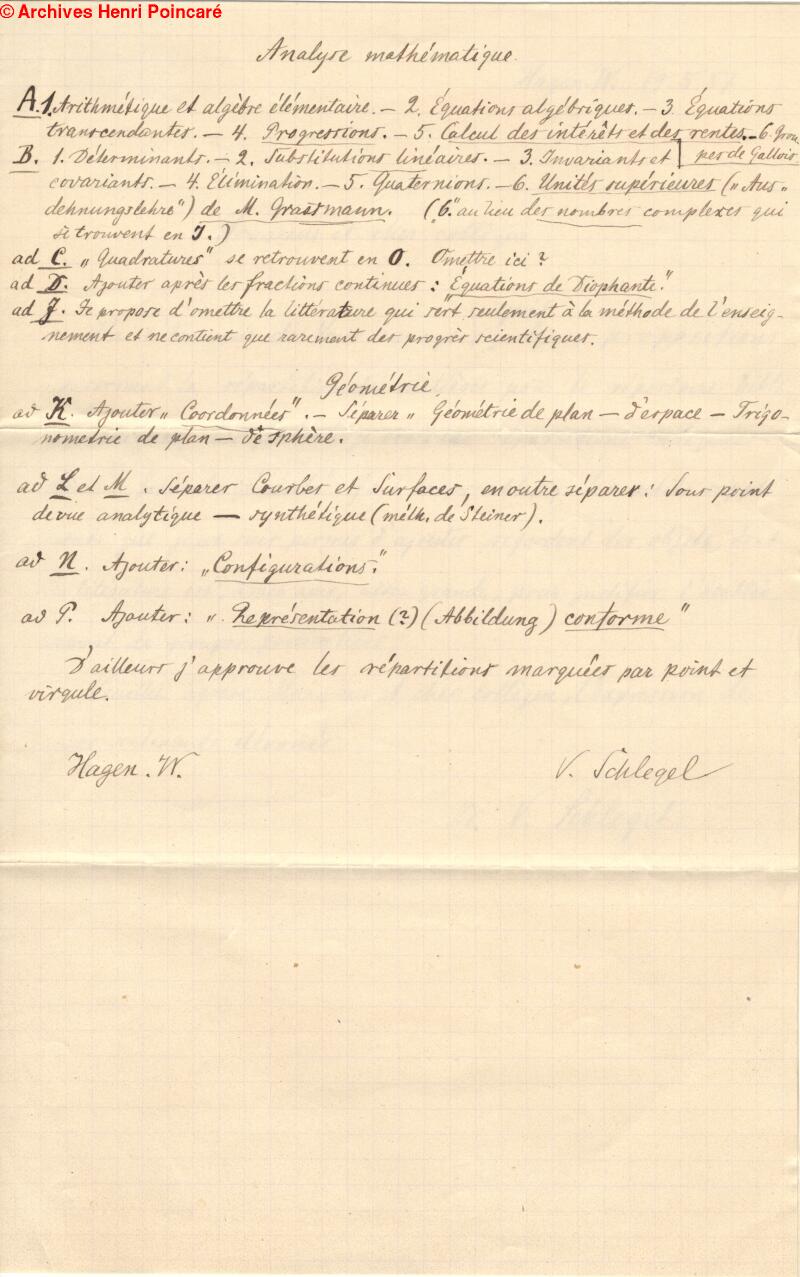 © Archives Henri Poincaré
Analyse mathématique.
A. 1. Arithmétique et algèbre élémentaire. — 2. Équations algébriques. — 3. Équations
transcendantes. — 4. Progressions. — 5. Calcul des intérêts et des rentes. — 6. Grou-
pes de Gallois
B. 1. Déterminants. — 2. Substitutions linéaires. — 3. Invariants et
covariants. — 4. Elimination. — 5. Quaternions. — 6. Unités supérieures („Aus„
dehnungslehre") de M. Grassmann. (6." au lieu des nombres complexes qui
se trouvent en J.)
ad C. „Quadratures" se retrouvent en O. Omettre ici?
ad D. Ajouter après les fractions continues: „Équations de Diophante."
ad J. Je propose d'omettre la littérature qui sert seulement à la méthode de l'enseig-
nement et ne contient que rarement des progrès scientifiques.
Géométrie
ad K. Ajouter „Coordonnées". — Séparer „Géométrie de plan — d'espace — Trigo-
nometrie de plan — de sphère.
ad L et M. Séparer Courbes et Surfaces, en outre séparer: Sous point
de vue analytique — synthétique (méth. de Steiner).
ad N. Ajouter: „Configurations."
ad P. Ajouter: „Représentation (?) (Abbildung) conforme"
D'ailleurs j'approuve les répartitions marquées par point et
virgule.
Hagen. W. V. Schlegel